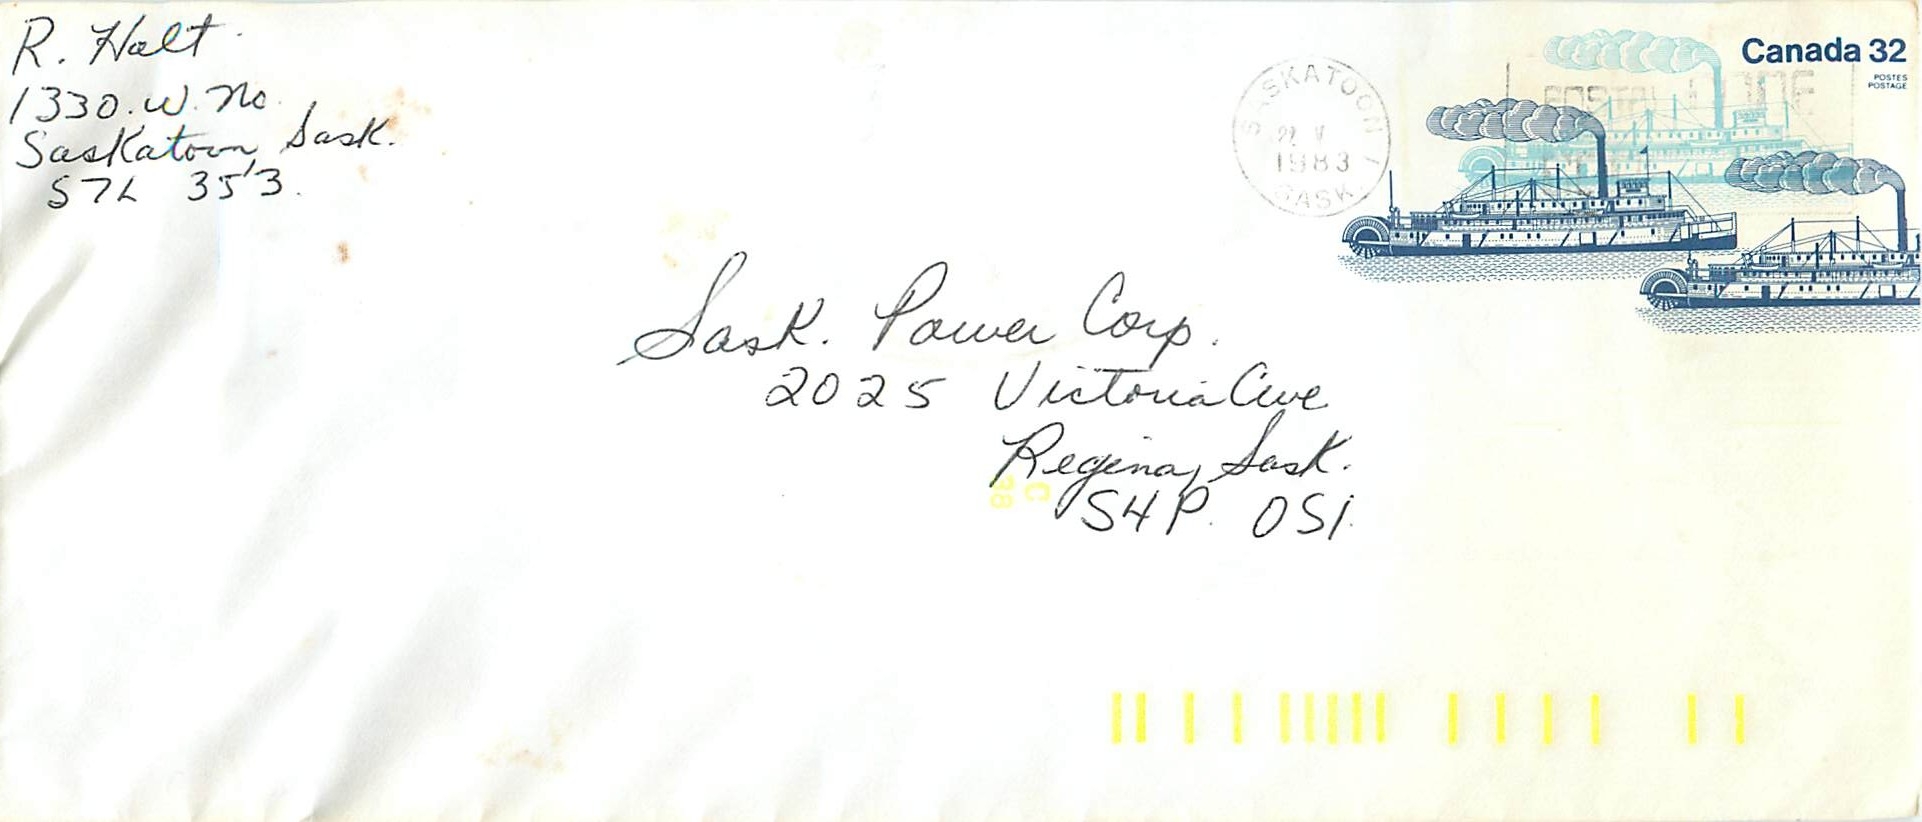 R. Halt
1330. W. No.
Saskatoon, Sask.
S7L 3S3.
SASKATOON 1
V
1983
SASK.
POSTAL CODE
Canada 32
POSTES
POSTAGE
Sask. Power Corp.
2025 Victoria Ave
Regina, Sask.
S4P. 0S1.
C